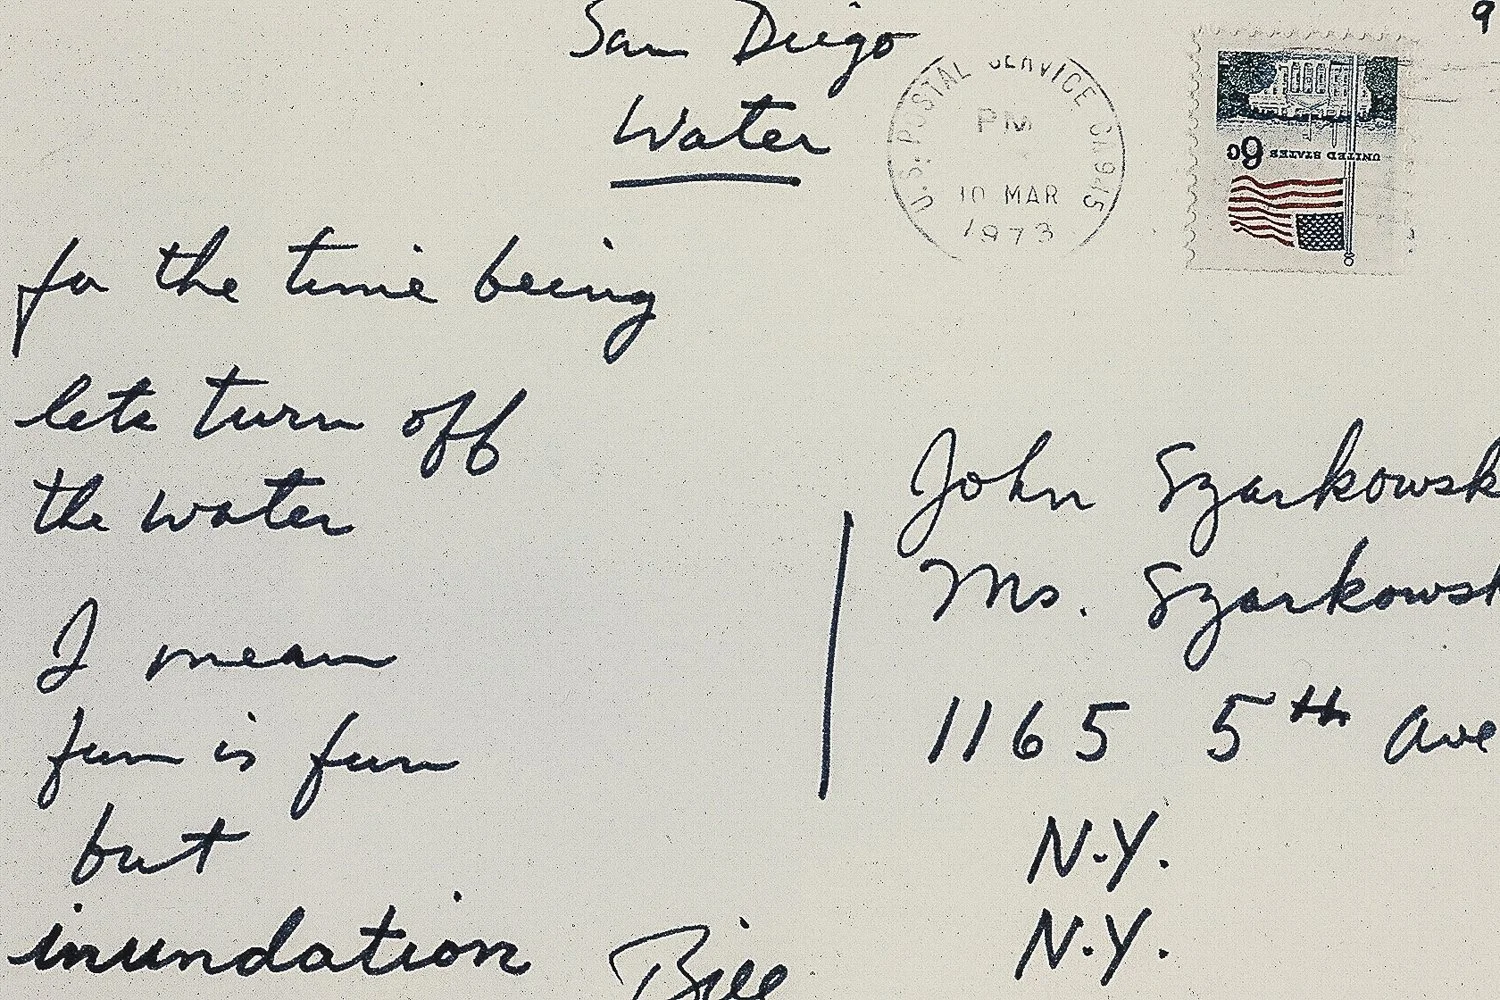 San Diego
Water
9
U.S. POSTAL SERVICE CA 945
PM
10 MAR
1973
UNITED STATES 6c
for the time being
lets turn off
the water
I mean
fun is fun
but
inundation
Bill
John Szarkowsk
Ms. Szarkowsk
1165 5th Ave
N.Y.
N.Y.